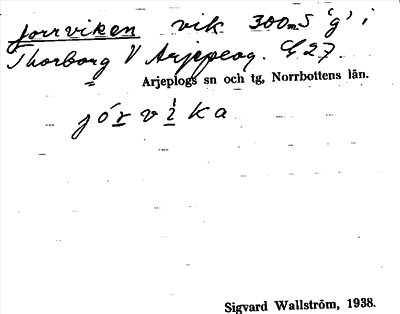 Jorrviken vik 300 m S 'g' i
Thorborg V Arjeplog. G.27.
Arjeplogs sn och tg, Norrbottens län.
jórvìka
Sigvard Wallström, 1938.